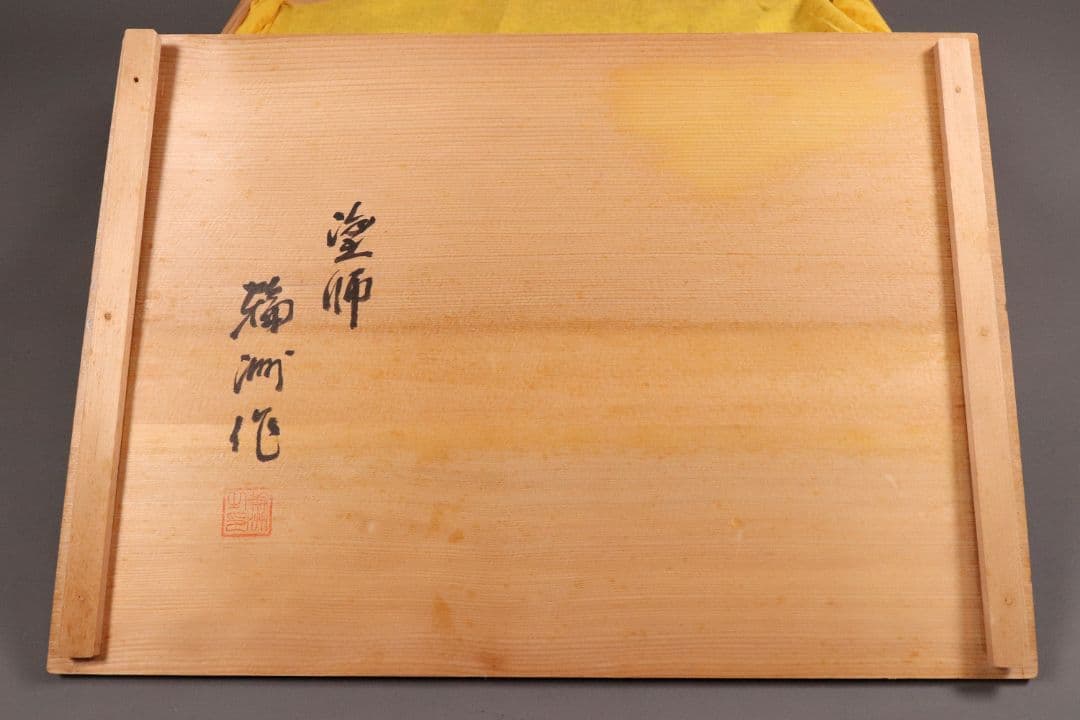 塗師
輪洲作